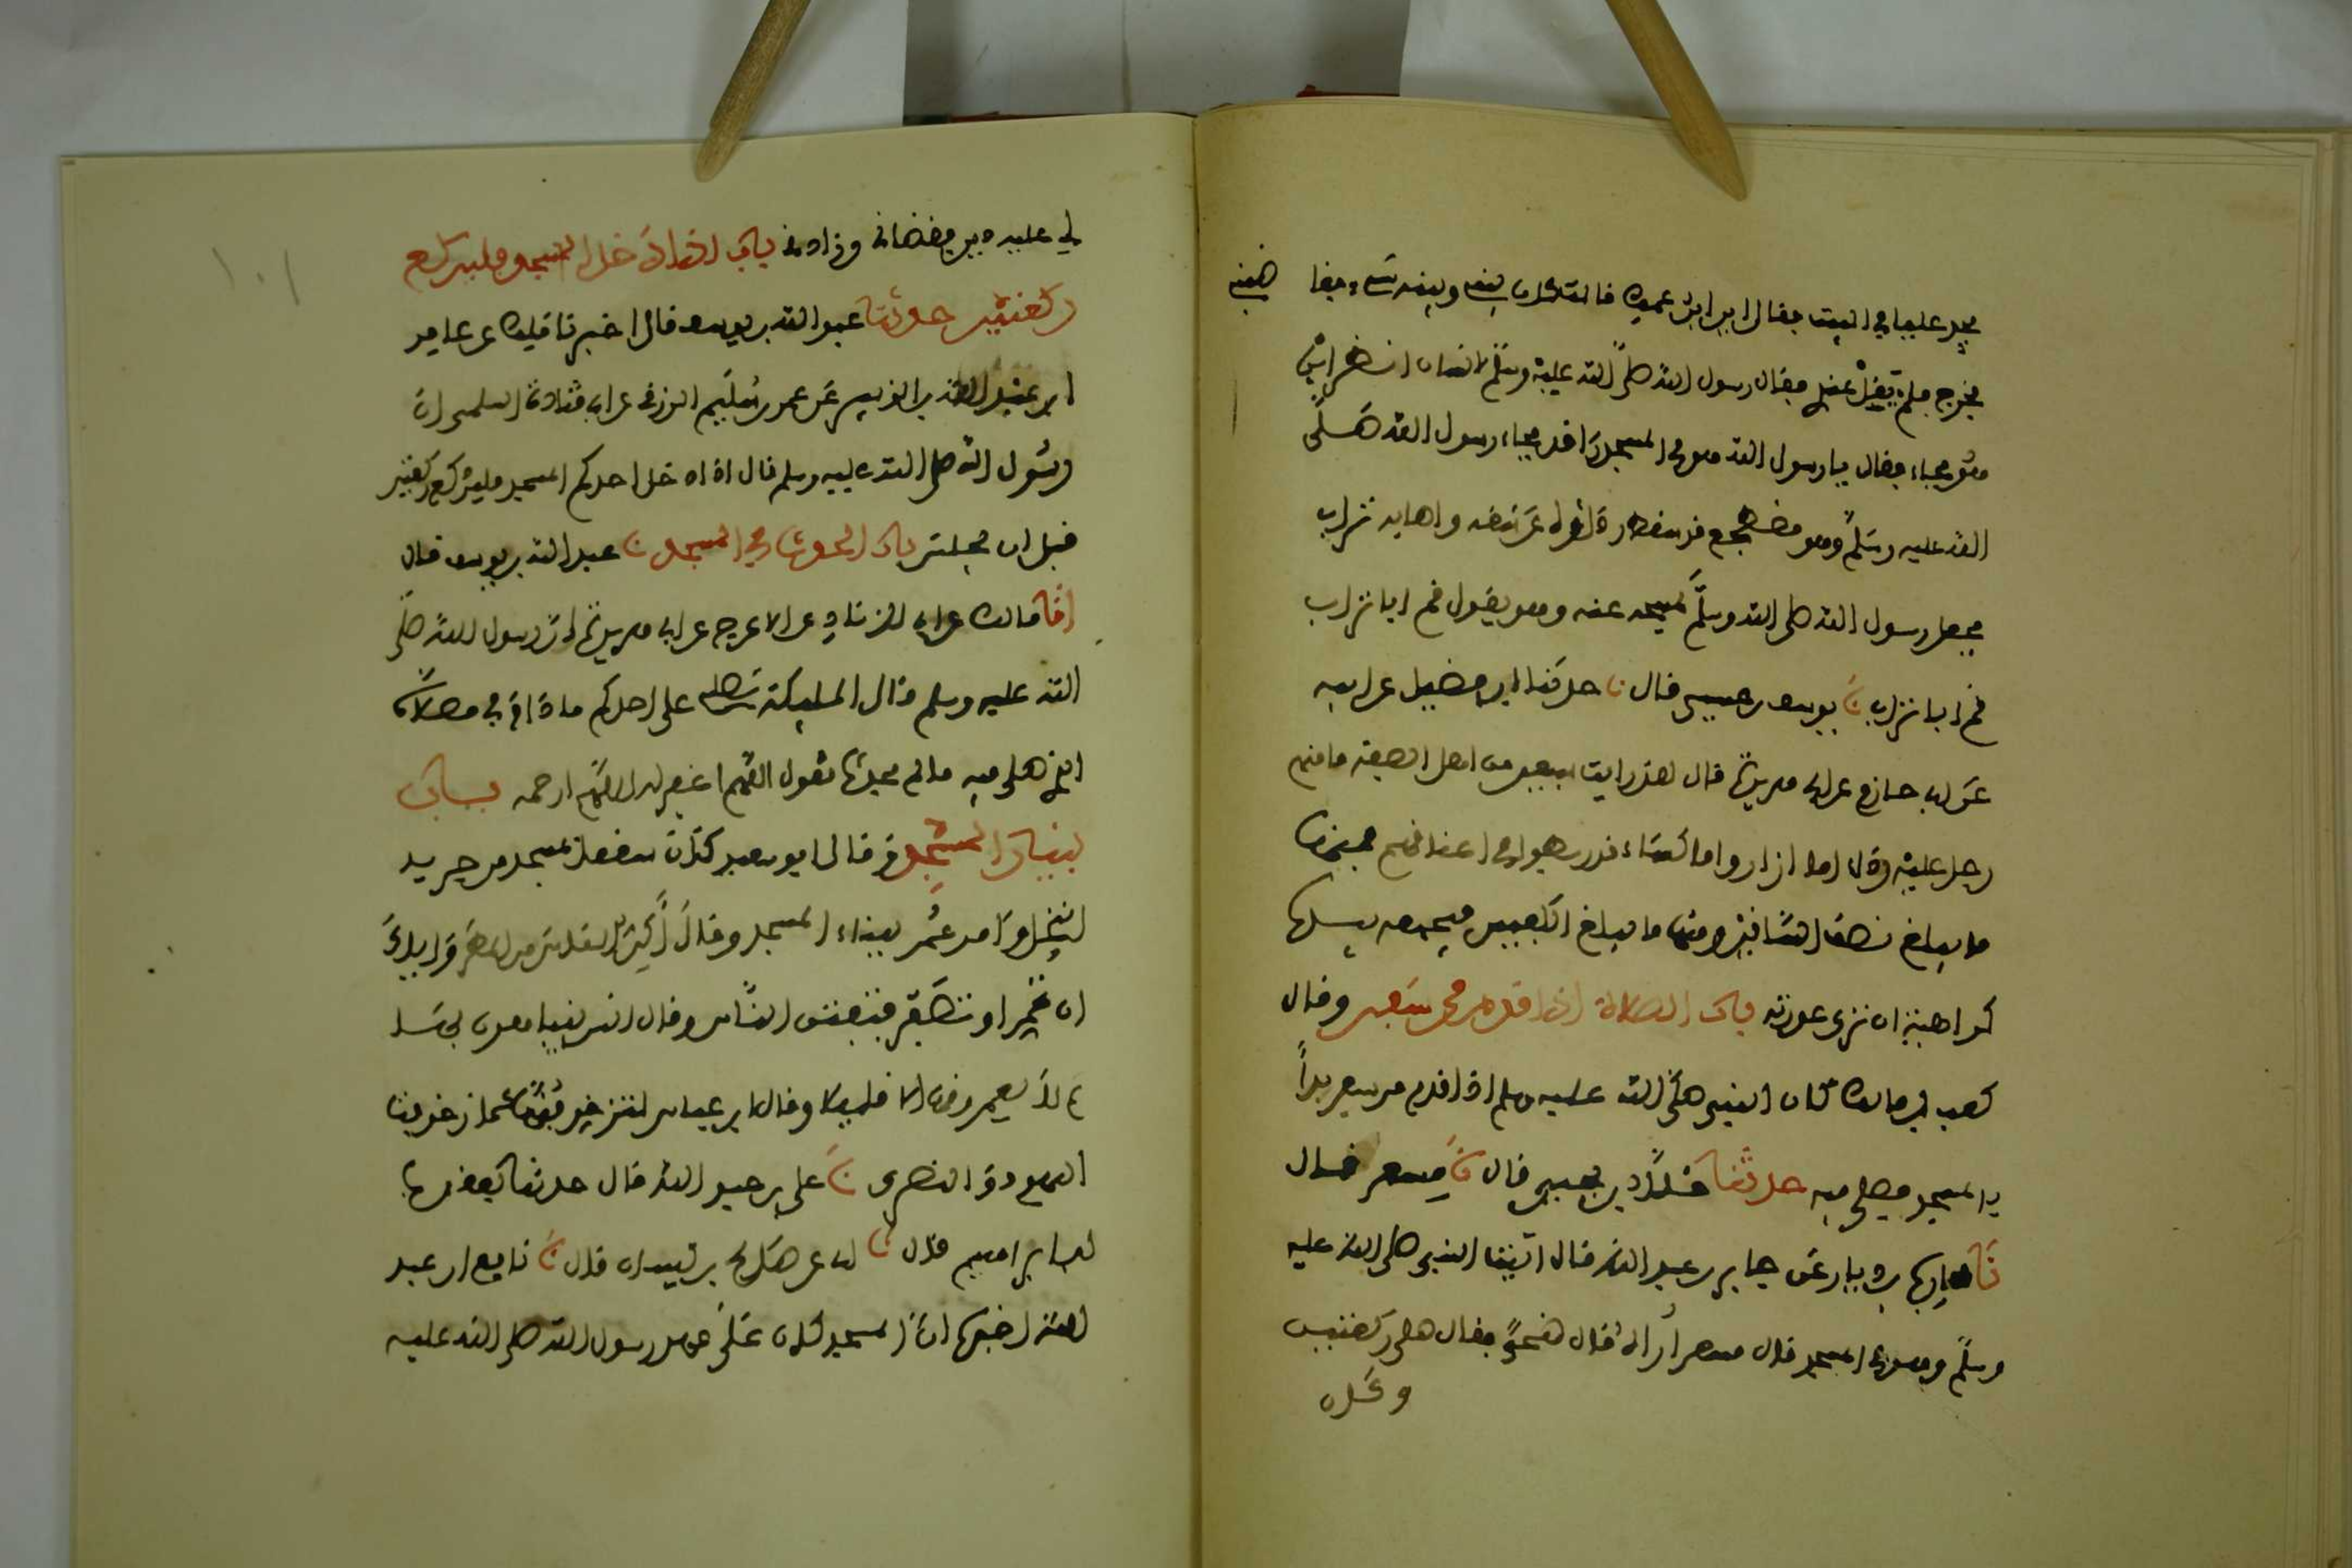 يجد عليا في البيت فقال اين ابن عمك قالت كان بيني وبينه شيء فغا ضبني
فخرج فلم يقل عندي فقال رسول الله صلى الله عليه وسلم لانسان انظر اين
هو فجاء فقال يا رسول الله هو في المسجد راقد فجاء رسول الله صلى
الله عليه وسلم وهو مضطجع قد سقط رداؤه عن شقه واصابه تراب
فجعل رسول الله صلى الله وسلم يمسحه عنه وهو يقول قم ابا تراب
قم ابا تراب نا يوسف بن عيسى قال نا حدثنا ابن فضيل عن ابيه
عن ابي حازم عن ابي هريرة قال لقد رايت سبعين من اهل الصفة ما منهم
رجل عليه رداء اما ازار واما كساء قد ربطوا في اعناقهم فمنها
ما يبلغ نصف الساقين ومنها ما يبلغ الكعبين فيجمعه بيده
كراهية ان ترى عورته باب الصلاة اذا قدم من سفر وقال
كعب بن مالك كان النبي صلى الله عليه وسلم اذا قدم من سفر بدأ
بالمسجد فصلى فيه حدثنا خلاد بن يحيى قال نا مسعر قال
نا محارب بن دثار عن جابر بن عبد الله قال اتيت النبي صلى الله عليه
وسلم وهو في المسجد قال مسعر أراه قال ضحى فقال صل ركعتين
وكان
لي عليه دين فقضاني وزادني باب اذا دخل المسجد فليركع
ركعتين حدثنا عبد الله بن يوسف قال اخبرنا مالك عن عامر
ابن عبد الله بن الزبير عن عمرو بن سليم الزرقي عن ابي قتادة السلمي ان
رسول الله صلى الله عليه وسلم قال اذا دخل احدكم المسجد فليركع ركعتين
قبل ان يجلس باب الحدث في المسجد نا عبد الله بن يوسف قال
انا مالك عن ابي الزناد عن الاعرج عن ابي هريرة ان رسول الله صلى
الله عليه وسلم قال الملائكة تصلي على احدكم ما دام في مصلاه
الذي صلى فيه ما لم يحدث تقول اللهم اغفر له اللهم ارحمه باب
بنيان المسجد وقال ابو سعيد كان سقف المسجد من جريد
النخل وامر عمر ببناء المسجد وقال أكن الناس من المطر واياك
ان تحمر او تصفر فتفتن الناس وقال انس يتباهون بها
ثم لا يعمرونها الا قليلا وقال ابن عباس لتزخرفنها كما زخرفت
اليهود والنصرى نا علي بن عبد الله قال حدثنا يعقوب
ابن ابراهيم قال نا ابي عن صالح بن كيسان قال نا نافع ان عبد
الله اخبره ان المسجد كان على عهد رسول الله صلى الله عليه
١٠١